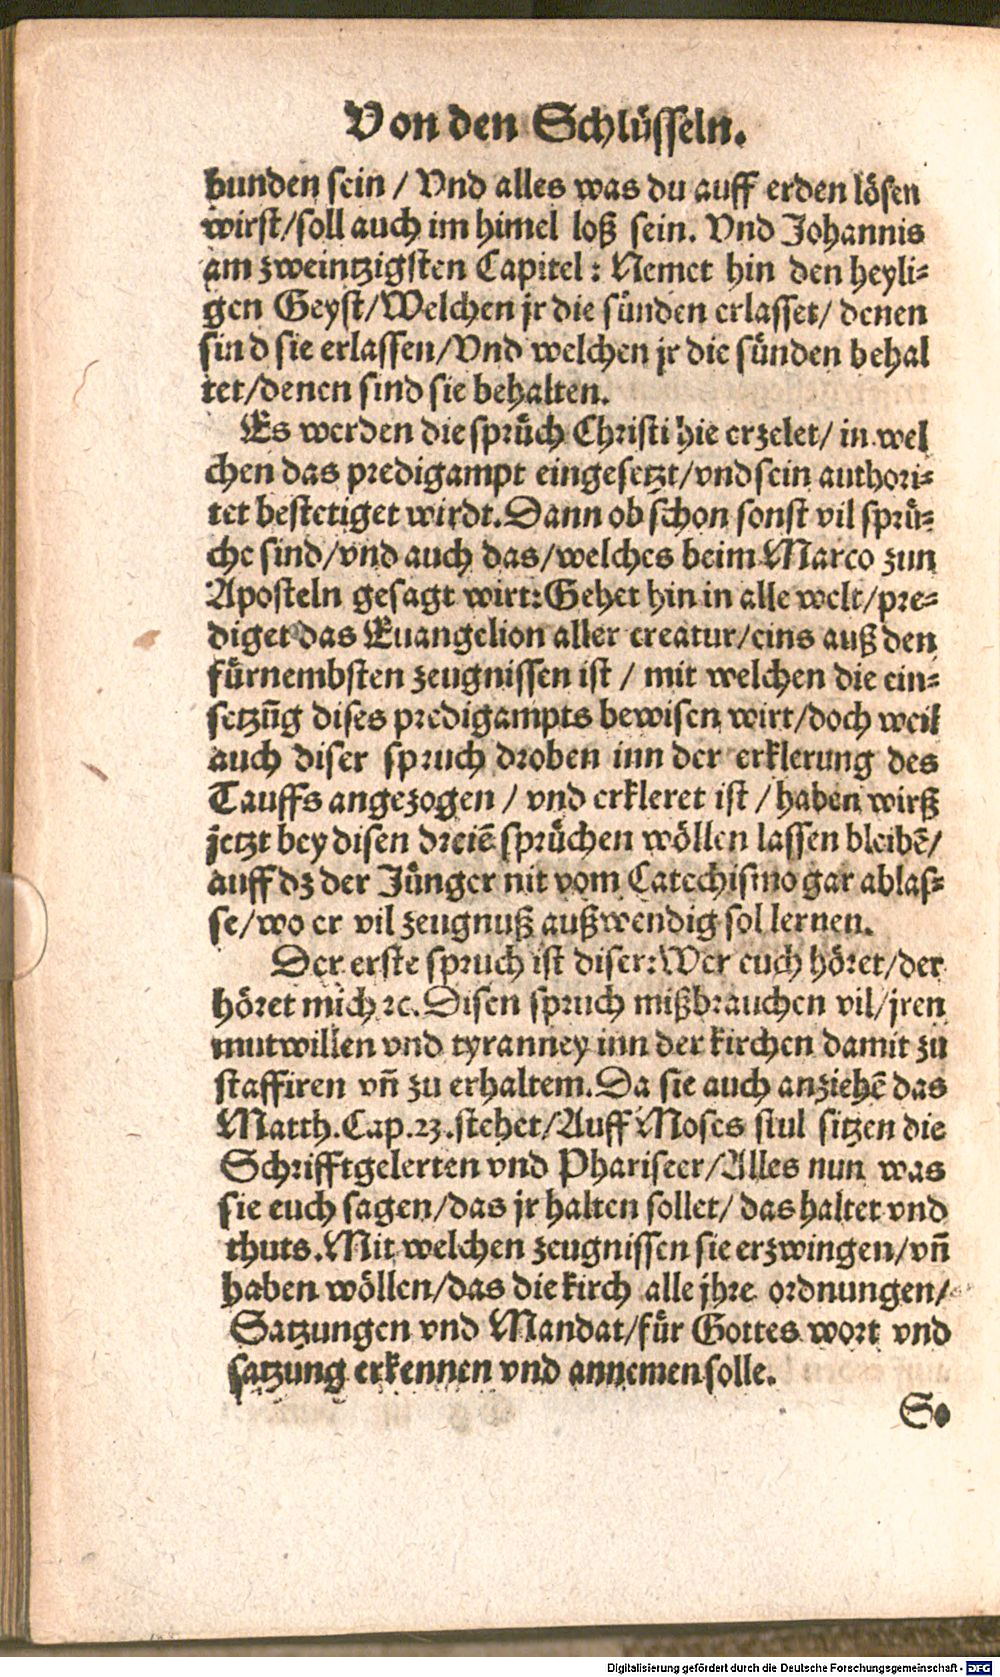 Von den Schlüsseln.
bunden sein / Vnd alles was du auff erden lösen
wirst/soll auch im himel loß sein. Vnd Johannis
am zweintzigsten Capitel : Nemet hin den heyli⸗
gen Geyst/Welchen jr die sünden erlasset/ denen
sind sie erlassen/Vnd welchen jr die sünden behal
tet/denen sind sie behalten.
Es werden die sprüch Christi hie erzelet/ in wel
chen das predigampt eingesetzt/vnd sein authori⸗
tet bestetiget wirdt. Dann ob schon sonst vil sprü⸗
che sind/vnd auch das/welches beim Marco zun
Aposteln gesagt wirt: Gehet hin in alle welt/pre⸗
diget das Euangelion aller creatur/eins auß den
fürnembsten zeugnissen ist / mit welchen die ein⸗
setzūg dises predigampts bewisen wirt/doch weil
auch diser spruch droben inn der erklerung des
Tauffs angezogen / vnd erkleret ist / haben wirß
jetzt bey disen dreiē sprüchen wöllen lassen bleibē/
auff dz der Jünger nit vom Catechismo gar ablas⸗
se/wo er vil zeugnuß außwendig sol lernen.
Der erste spruch ist diser: Wer euch höret/der
höret mich ꝛc. Disen spruch mißbrauchen vil/jren
mutwillen vnd tyranney inn der kirchen damit zu
staffiren vñ zu erhaltem. Da sie auch anziehē das
Matth. Cap. 23. stehet/Auff Moses stul sitzen die
Schrifftgelerten vnd Phariseer/Alles nun was
sie euch sagen/das jr halten sollet/ das haltet vnd
thuts. Mit welchen zeugnissen sie erzwingen/vñ
haben wöllen/das die kirch alle jhre ordnungen/
Satzungen vnd Mandat/für Gottes wort vnd
satzung erkennen vnd annemen solle.
So
Digitalisierung gefördert durch die Deutsche Forschungsgemeinschaft - DFG